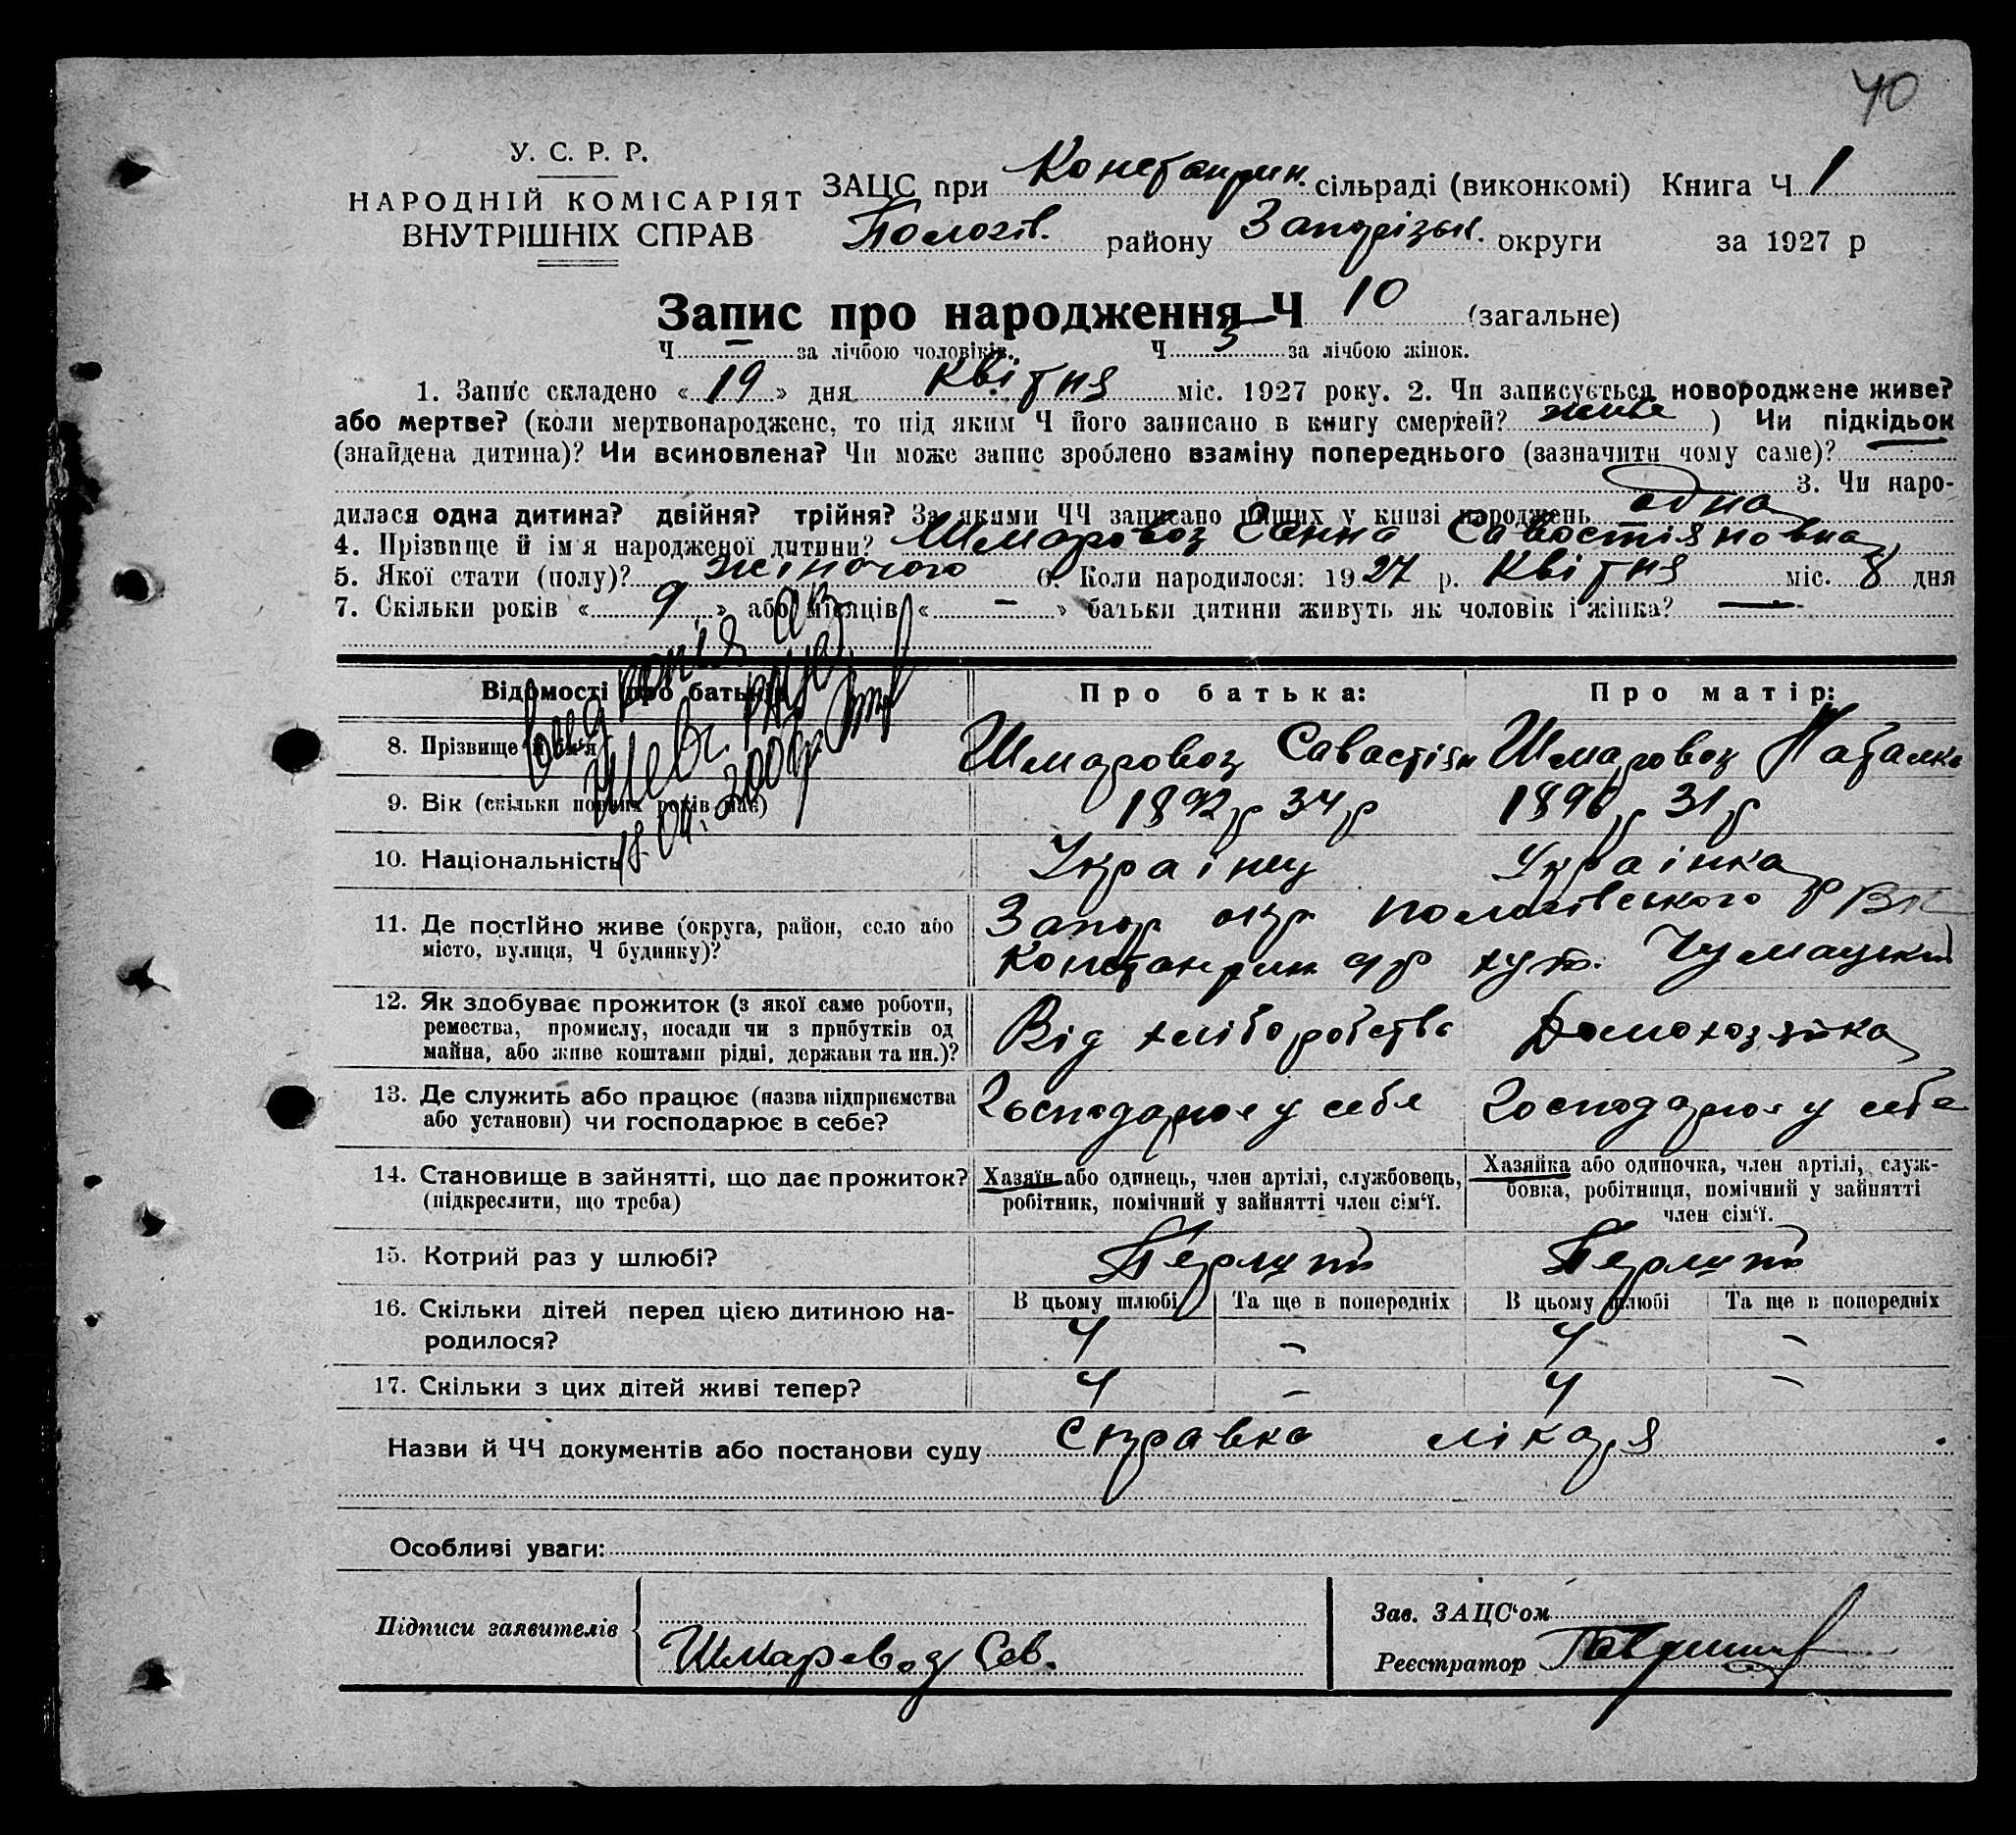 40
У. С. Р. Р.
НАРОДНІЙ КОМІСАРІЯТ
ВНУТРІШНІХ СПРАВ
ЗАЦС при Констанрин. сільраді (виконкомі) Книга Ч 1
Пологів. району Запорізьк. округи за 1927 р
Запис про народження Ч 10 (загальне)
Ч — за лічбою чоловіків. Ч 5 за лічбою жінок.
1. Запис складено « 19 » дня Квітня міс. 1927 року. 2. Чи записується новороджене живе?
або мертве? (коли мертвонароджене, то під яким Ч його записано в книгу смертей? живе ) Чи підкідьок
(знайдена дитина)? Чи всиновлена? Чи може запис зроблено взаміну попереднього (зазначити чому саме)? —
3. Чи наро-
дилася одна дитина? двійня? трійня? За якими ЧЧ записано інших у книзі народжень одна
4. Прізвище й ім'я народженої дитини? Шмаровоз Ганна Савостіяновна
5. Якої стати (полу)? жіночого 6. Коли народилося: 1927 р. Квітня міс. 8 дня
7. Скільки років « 9 » або місяців « — » батьки дитини живуть як чоловік і жінка? —
Відомості про батьків
Про батька:
Про матір:
8. Прізвище й ім'я
Шмаровоз Савастіян
Шмаровоз Наталка
9. Вік (скільки повних років має)
1892р 34р
1896р 31р
10. Національність
Українц
Українка
18.04.2000р.
11. Де постійно живе (округа, район, село або
місто, вулиця, Ч будинку)?
Запор окр Пологівського р ВК
Констанрин с/р хут. Чумацький
12. Як здобуває прожиток (з якої саме роботи,
ремества, промислу, посади чи з прибутків од
майна, або живе коштами рідні, держави та ин.)?
Від хліборобства
Домохозяйка
13. Де служить або працює (назва підприємства
або установи) чи господарює в себе?
Господарює у себе
Господарює у себе
14. Становище в зайнятті, що дає прожиток?
(підкреслити, що треба)
Хазяїн або одинець, член артілі, службовець,
робітник, помічний у зайнятті член сім'ї.
Хазяйка або одиночка, член артілі, служ-
бовка, робітниця, помічний у зайнятті
член сім'ї.
15. Котрий раз у шлюбі?
Перший
Перший
16. Скільки дітей перед цією дитиною на-
родилося?
В цьому шлюбі Та ще в попередніх В цьому шлюбі Та ще в попередніх
4 — 4 —
17. Скільки з цих дітей живі тепер?
4 — 4 —
Назви й ЧЧ документів або постанови суду Справка лікаря
Особливі уваги:
Підписи заявителів
Шмаровоз Сав.
Зав. ЗАЦС'ом
Реєстратор